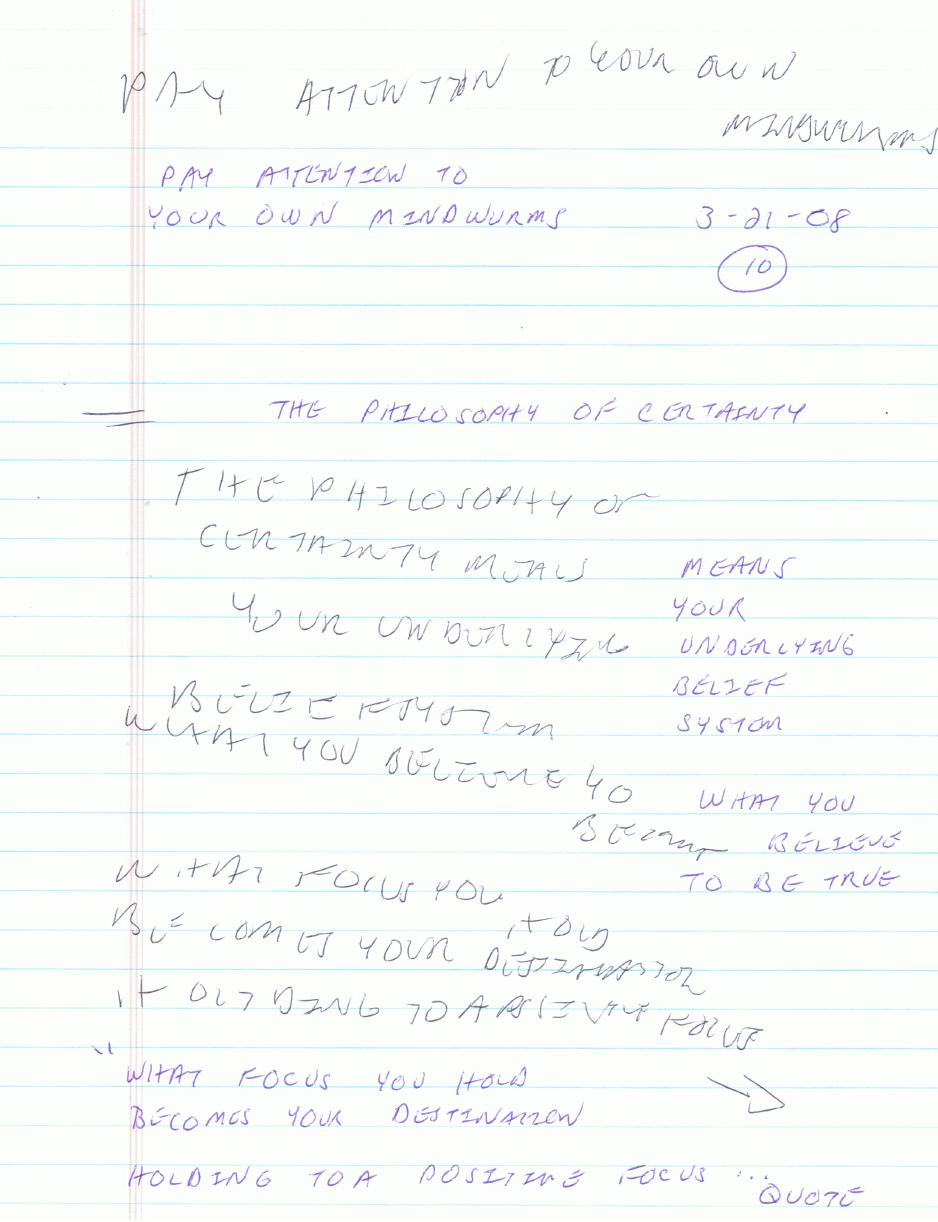 PAY ATTENTION TO YOUR OWN
MINDWURMS
PAY ATTENTION TO
YOUR OWN MINDWURMS 3-21-08
10
THE PHILOSOPHY OF CERTAINTY
THE PHILOSOPHY OF
CERTAINTY MEANS MEANS
YOUR UNDERLYING YOUR
UNDERLYING
BELIEF SYSTEM BELIEF
SYSTEM
WHAT YOU BELIEVE TO
BE WHAT YOU
BELIEVE
TO BE TRUE
WHAT FOCUS YOU
HOLD
BECOMES YOUR DESTINATION
HOLDING TO A POSITIVE FOCUS
"WHAT FOCUS YOU HOLD
BECOMES YOUR DESTINATION
HOLDING TO A POSITIVE FOCUS ...
QUOTE